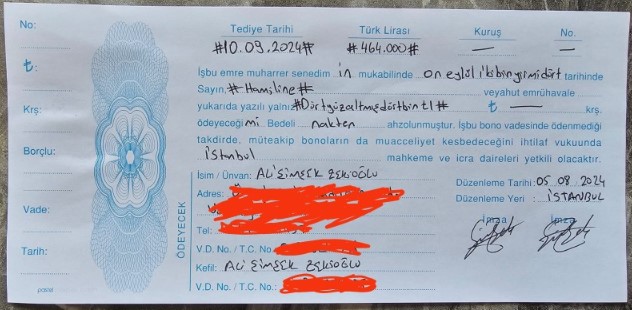 No:
₺:
Krş:
Borçlu:
Vade:
Tarih:
Tediye Tarihi Türk Lirası Kuruş No.
#10.09.2024# #464.000# — —
İşbu emre muharrer senedim in mukabilinde on eylül ikibinyirmidört tarihinde
Sayın, #Hamiline# veyahut emrühavale
yukarıda yazılı yalnız #Dörtyüzaltmışdörtbintl# ₺ — krş.
ödeyeceği mi Bedeli nakten ahzolunmuştur. İşbu bono vadesinde ödenmediği
takdirde, müteakip bonoların da muacceliyet kesbedeceğini ihtilaf vukuunda
istnbul mahkeme ve icra daireleri yetkili olacaktır.
ÖDEYECEK
İsim / Ünvan: ALİ ŞİMŞEK
Düzenleme Tarihi: 05 08 2024
Adres:
Düzenleme Yeri : İSTANBUL
İmza İmza
Tel:
V.D. No. / T.C. No.
Kefil: ALİ ŞİMŞEK
V.D. No. / T.C. No.: